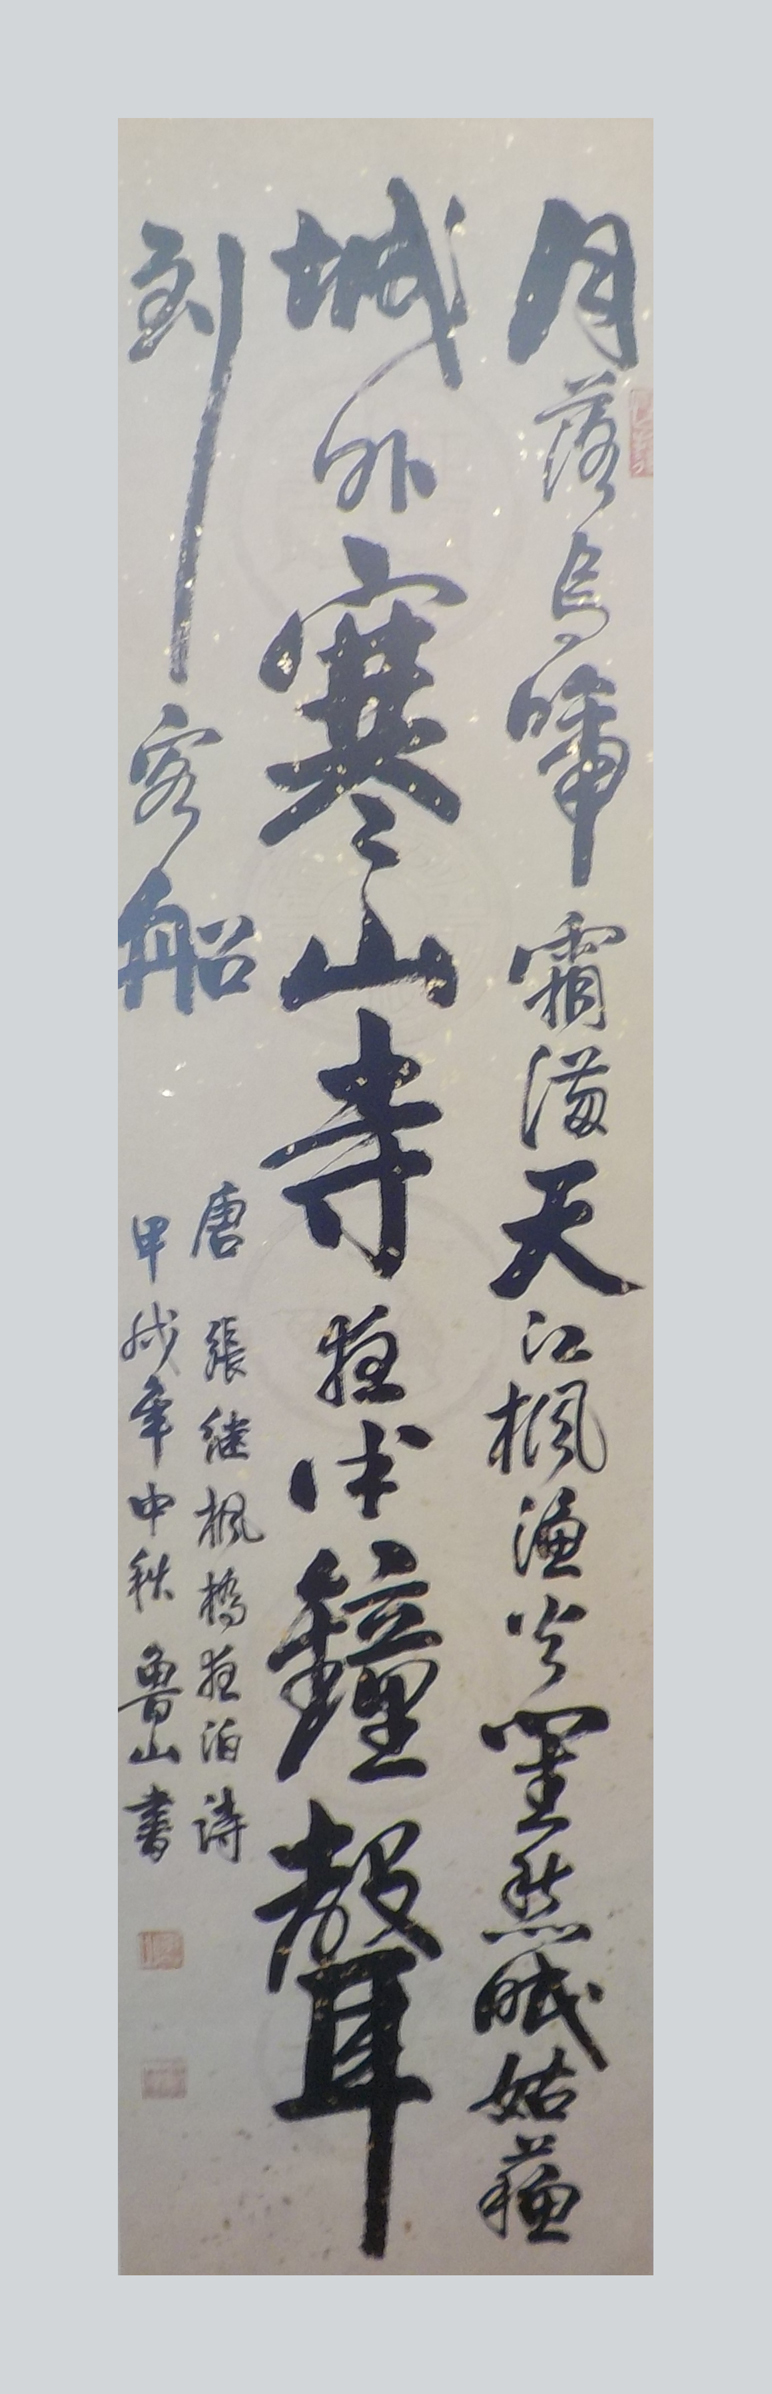 月落烏啼霜滿天江楓漁火對愁眠姑蘇
城外寒山寺夜半鐘聲
到客船
唐 張継楓橋夜泊詩
甲戌年中秋 魯山書